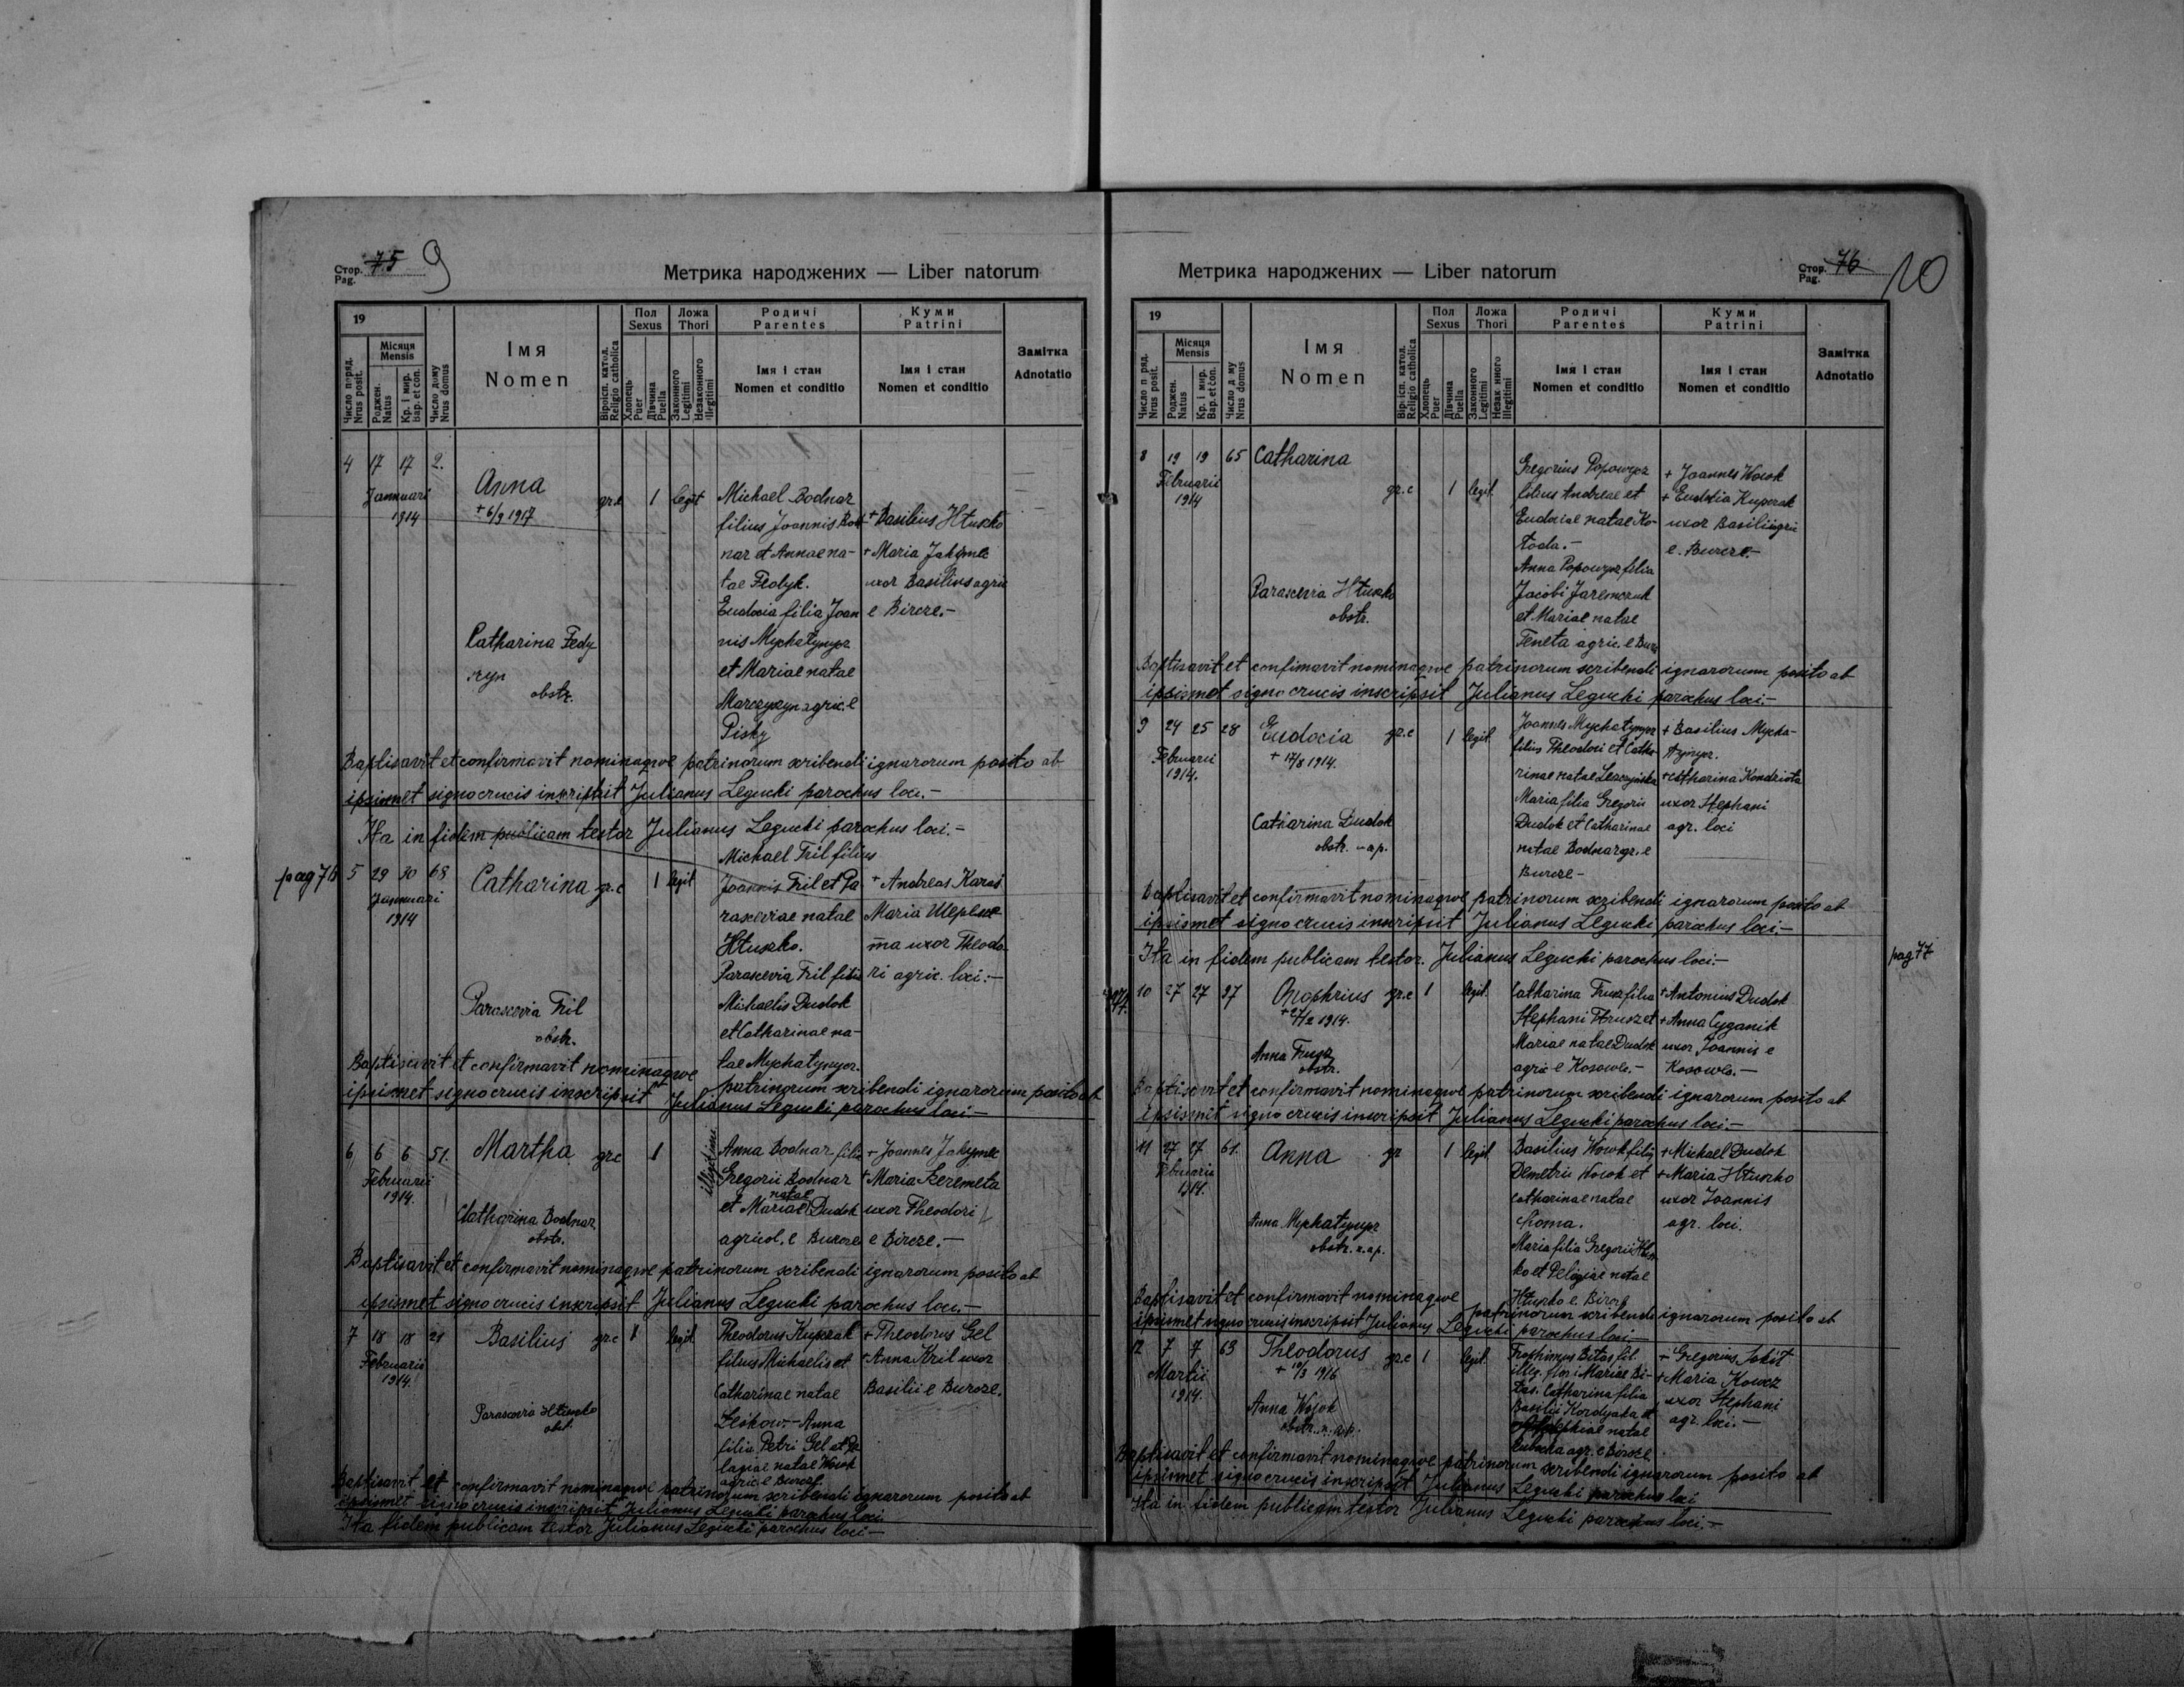 Стор. Pag. 75 9
Метрика народжених — Liber natorum
19
Число поряд. Nrus posit.
Місяця Mensis
Роджен. Natus
Кр. і мир. Bap. et con.
Число дому Nrus domus
Імя Nomen
Віроісп. катол. Religio catholica
Пол Sexus
Хлопець Puer
Дівчина Puella
Ложа Thori
Законного Legitimi
Незаконного Illegitimi
Родичі Parentes
Імя і стан Nomen et conditio
Куми Patrini
Імя і стан Nomen et conditio
Замітка Adnotatio
4 17 17 2.
Januari 1914
Anna
+ 6/9 1917
gr.c 1 legit
Michael Bodnar
filius Joannis Bod
nar et Annae na-
tae Fedyk.
Eudocia filia Joan
nis Mychatynycz
et Mariae natae
agric. e
Pisky
+ Basilius Htuszko
+ Maria Jakymec
uxor Basilius agric
e Bircze.-
Catharina Fedy
ryn
obstr.
Baptisavit et confirmavit nominaque patrinorum scribendi ignarorum posito ab
ipsismet signo crucis inscripsit Julianus Legucki parochus loci.-
Ita in fidem publicam testor Julianus Legucki parochus loci.-
pag 76 5 29 30 68
Januari
1914
Catharina gr.c 1 legit
Michael Tril filius
Joannis Tril et Pa
rasceviae natae
Htuszko.
Parascevia Tril filia
Michaelis Dudok
et Catharinae na-
tae Mychatynycz.
+ Andreas Karas
Maria
ma uxor Theodo
ri agric. loci.-
Parascevia Tril
obstr.
Baptisavit et confirmavit nominaque
patrinorum scribendi ignarorum posito ab
ipsismet signo crucis inscripsit Julianus Legucki parochus loci.-
6 6 6 51.
Februarii
1914.
Martha gr.c 1 illigitimi
Anna Bodnar filia
Gregorii Bodnar
et Mariae natae Dudok
agricol. e Burcze
+ Joannes Jakymec
+ Maria Szeremeta
uxor Theodori
e Bircze.-
Catharina Bodnar
obstr.
Baptisavit et confirmavit nominaque patrinorum scribendi ignarorum posito ab
ipsismet signo crucis inscripsit Julianus Legucki parochus loci.-
7 18 18 21
Februarii
1914.
Basilius gr.c 1 legit
Theodorus Kuperak
filius Michaelis et
Catharinae natae
Leskow.- Anna
filia Petri Gel et Pe
lagiae natae Wowk
agric. e Burcze
+ Theodorus Gel
+ Anna Kril uxor
Basilii e Burcze.
Parascevia Htuszko
obst.
Baptisavit et confirmavit nominaque patrinorum scribendi ignarorum posito ab
ipsismet signo crucis inscripsit Julianus Legucki parochus loci
Ita fidem publicam testor Julianus Legucki parochus loci-
Метрика народжених — Liber natorum
Стор. Pag. 76 10
19
Число п ряд. Nrus posit.
Місяця Mensis
Роджен. Natus
Кр. і мир. Bap. et con.
Число д му Nrus domus
Імя Nomen
Вір.ісп. катол. Religio catholica
Пол Sexus
Хлопець Puer
Дівчина Puella
Ложа Thori
Законного Legitimi
Незак нного Illegitimi
Родичі Parentes
Імя і стан Nomen et conditio
Куми Patrini
Імя і стан Nomen et conditio
Замітка Adnotatio
8 19 19 65 Catharina
Februarii
1914
gr.c 1 legit.
Gregorius Popowycz
filius Andreae et
Eudociae natae Ko-
toda.-
Anna Popowycz filia
Jacobi Jaremczuk
et Mariae natae
Feneta agric. e Burc
+ Joannes Wowk
+ Eudokia Kuperak
uxor Basilii agric
e. Burcze.-
Parascevia Htuszko
obstr.
Baptisavit et confimavit nominaque patrinorum scribendi ignarorum posito ab
ipsismet signo crucis inscripsit Julianus Legucki parochus loci.-
9 24 25 28
Februarii
1914.
Eudocia gr.c 1 legit.
+ 17/8 1914.
Joannes Mychatynycz
filius Theodori et Catha-
rinae natae Leszczynska
Maria filia Gregorii
Dudok et Catharinae
natae Bodnar gr. e
Burcze-
+ Basilius Mycha-
tynycz.
+ Catharina Kondriota
uxor Stephani
agr. loci
Catharina Dudok
obstr. n. ap.
Baptisavit et confirmavit nominaque patrinorum scribendi ignarorum posito ab
ipsismet signo crucis inscripsit Julianus Legucki parochus loci.-
Ita in fidem publicam testor. Julianus Legucki parochus loci.-
pag 77
10 27 27 37
Onophrius gr.c 1 legit.
+ 27/2 1914.
Catharina Trusz filia
Stephani Trusz et
Mariae natae Dudok
agric e Kosowo.-
+ Antonius Dudok
+ Anna Cyganik
uxor Joannis e
Kosowo.-
Anna Trusz
obstr.
Baptisavit et confirmavit nominaque patrinorum scribendi ignarorum posito ab
ipsismet signo crucis inscripsit Julianus Legucki parochus loci.-
11 27 27 61.
Februarii
1914.
Anna gr 1 legit.
Basilius Wowk filius
Demetrii Wowk et
Catharinae natae
Choma.
Maria filia Gregorii
ko et Pelagiae natae
Htuszko e. Bircze
+ Michael Dudok
+ Maria Htuszko
uxor Joannis
agr. loci.
Anna Mychatynycz
obstr. n. ap.
Baptisavit et confirmavit nominaque
patrinorum scribendi ignarorum posito ab
ipsismet signo crucis inscripsit Julianus Legucki parochus loci-
12 7 7 63
Martii
1914.
Theodorus gr.c 1 legit.
+ 10/3 1916
Trophimus Bitas fil.
illeg. thori Mariae Bi-
tas. Catharina filia
Basilii Kordyaka et
natae
agr. e Bircze
+ Gregorius Sokit
+ Maria Kowcz
uxor Stephani
agr. loci.-
Anna Wowk
obstr. n. ap.
Baptisavit et confirmavit nominaque patrinorum scribendi ignarorum posito ab
ipsismet signo crucis inscripsit Julianus Legucki parochus loci
Ita in fidem publicam testor Julianus Legucki parochus loci.-